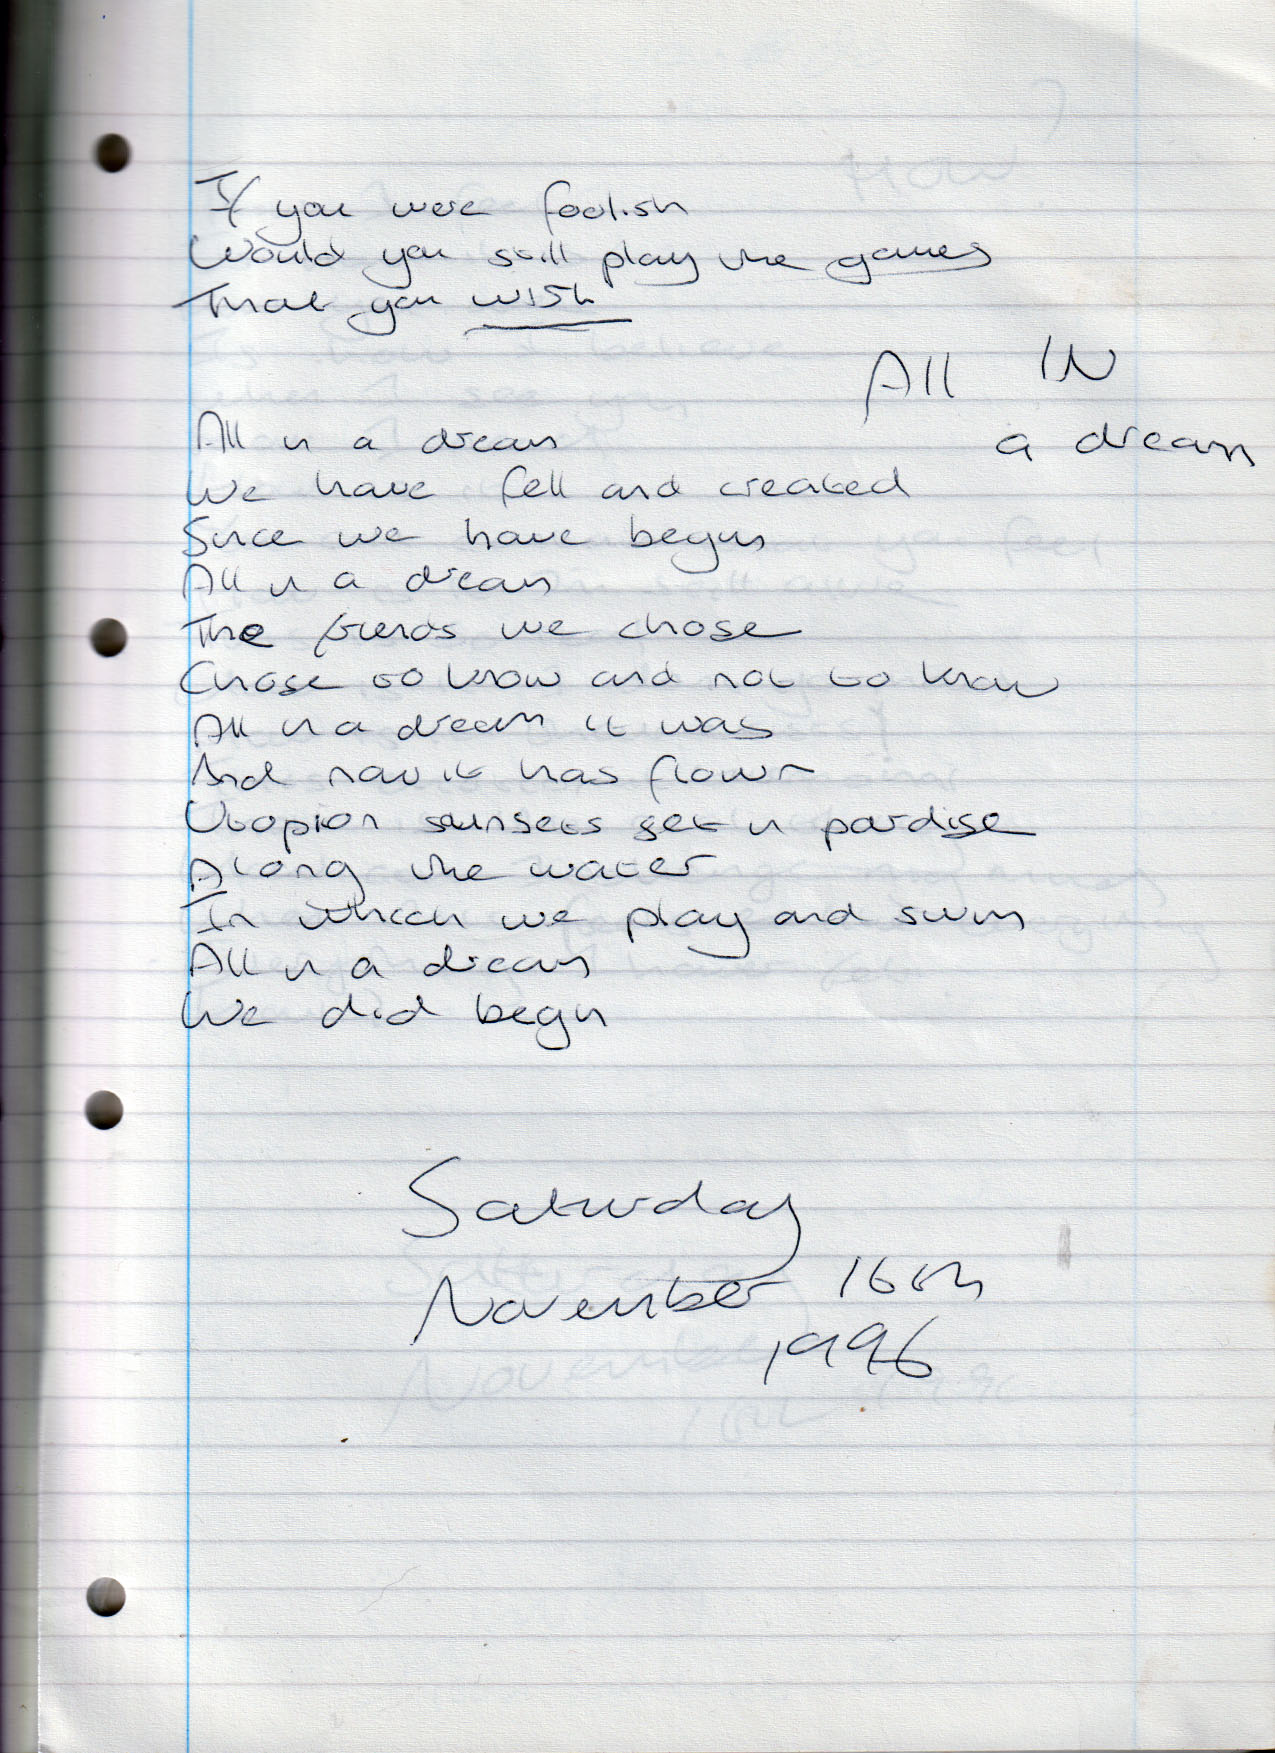 If you were foolish
Would you still play the games
That you wish
All IN
a dream
All in a dream
We have fell and created
Since we have begun
All in a dream
The friends we chose
Chose to know and not to know
All in a dream it was
And now it has flown
Utopian sunsets set in pardise
Along the water
In which we play and swim
All in a dream
We did begin
Saturday
November 16th
1996
How